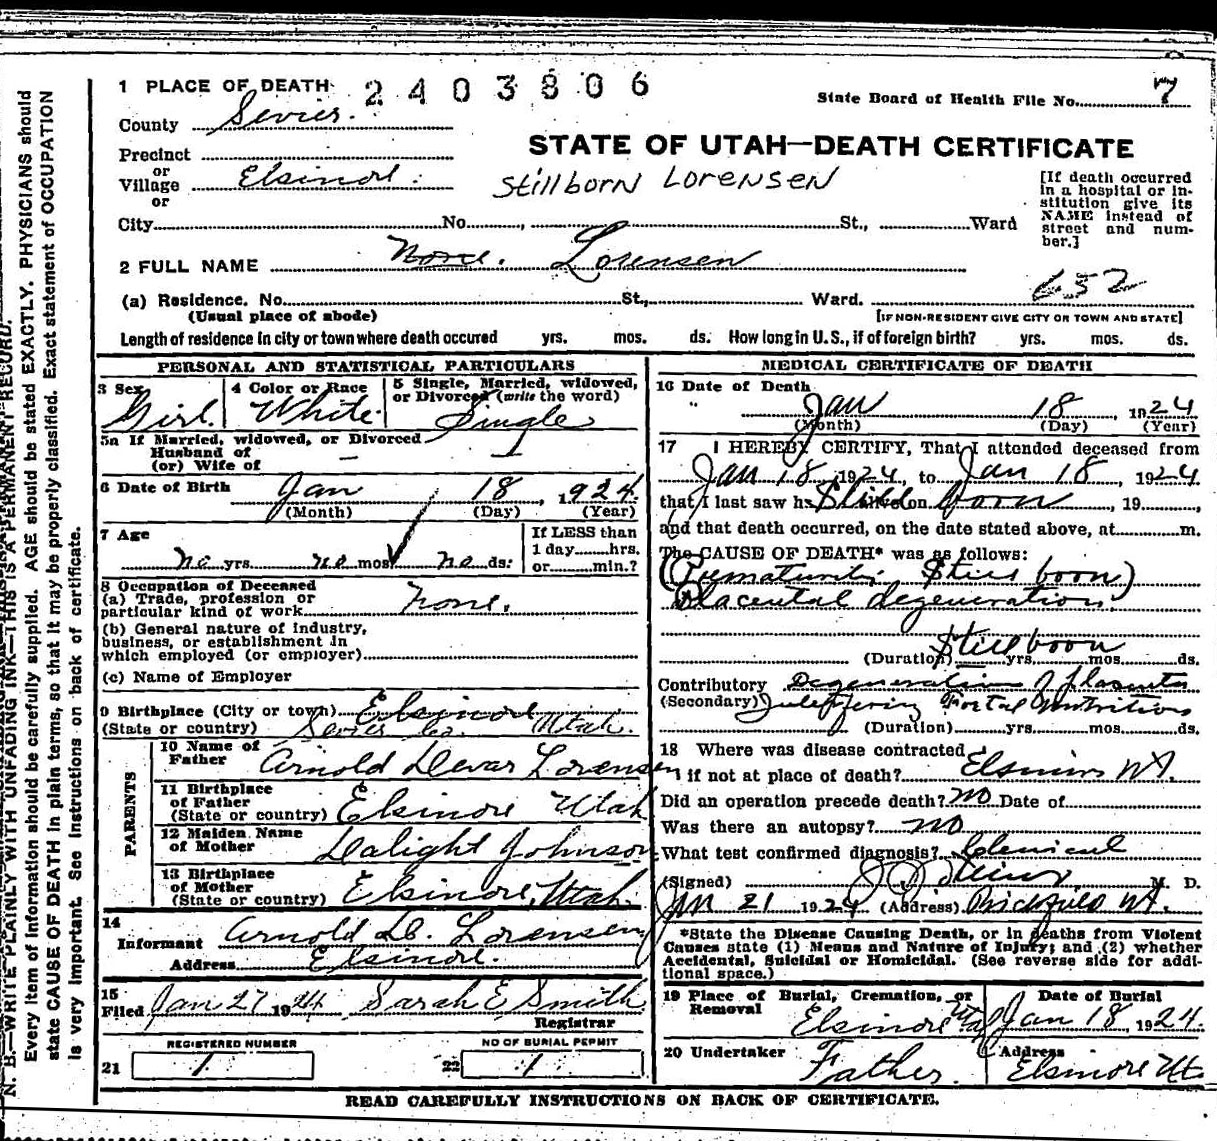 1 PLACE OF DEATH 2403806
State Board of Health File No. 7
County Sevier.
STATE OF UTAH—DEATH CERTIFICATE
Precinct
or
Village Elsinore.
Stillborn Lorensen
or
[If death occurred in a hospital or in-
stitution give its
NAME instead of
street and num-
ber.]
City No. , St., Ward
2 FULL NAME None. Lorensen
652
(a) Residence. No. St., Ward.
(Usual place of abode) [IF NON-RESIDENT GIVE CITY OR TOWN AND STATE]
Length of residence in city or town where death occured yrs. mos. ds. How long in U. S., if of foreign birth? yrs. mos. ds.
PERSONAL AND STATISTICAL PARTICULARS
3 Sex Girl.
4 Color or Race White
5 Single, Married, widowed,
or Divorced (write the word)
Single
5a If Married, widowed, or Divorced
Husband of
(or) Wife of
6 Date of Birth Jan 18, 1924.
(Month) (Day) (Year)
7 Age
no yrs. no mos. no ds.
If LESS than
1 day hrs.
or min.?
8 Occupation of Deceased
(a) Trade, profession or
particular kind of work None.
(b) General nature of industry,
business, or establishment in
which employed (or employer)
(c) Name of Employer
9 Birthplace (City or town) Elsinore
(State or country) Sevier Co. Utah.
PARENTS
10 Name of
Father Arnold Devar Lorensen
11 Birthplace
of Father
(State or country) Elsinore Utah
12 Maiden Name
of Mother Dalight Johnson
13 Birthplace
of Mother
(State or country) Elsinore, Utah.
14
Informant Arnold D. Lorensen
Address Elsinore.
15
Filed Jan 27 1924 Sarah E Smith
Registrar
REGISTERED NUMBER
21 1
NO OF BURIAL PERMIT
22 1
MEDICAL CERTIFICATE OF DEATH
16 Date of Death
Jan 18, 1924
(Month) (Day) (Year)
17 I HEREBY CERTIFY, That I attended deceased from
Jan 18, 1924, to Jan 18, 1924
that I last saw h alive on born, 19 ,
and that death occurred, on the date stated above, at m.
The CAUSE OF DEATH* was as follows:
(Prematurity Still born)
Placental degeneration.
Still born
(Duration) yrs. mos. ds.
Contributory Degeneration of placenta
(Secondary) Nutrition
(Duration) yrs. mos. ds.
18 Where was disease contracted
if not at place of death? Elsinore Ut.
Did an operation precede death? No Date of
Was there an autopsy? No
What test confirmed diagnosis? Clinical
(Signed) M. D.
Jan 21 1924 (Address) Richfield Ut.
*State the Disease Causing Death, or in deaths from Violent
Causes state (1) Means and Nature of Injury; and (2) whether
Accidental, Suicidal or Homicidal. (See reverse side for addi-
tional space.)
19 Place of Burial, Cremation, or
Removal
Elsinore Utah
Date of Burial
Jan 18, 1924.
20 Undertaker
Father.
Address
Elsinore Ut.
READ CAREFULLY INSTRUCTIONS ON BACK OF CERTIFICATE.
N. B.—WRITE PLAINLY WITH UNFADING INK—THIS IS A PERMANENT RECORD.
Every item of information should be carefully supplied. AGE should be stated EXACTLY. PHYSICIANS should
state CAUSE OF DEATH in plain terms, so that it may be properly classified. Exact statement of OCCUPATION
is very important. See instructions on back of certificate.